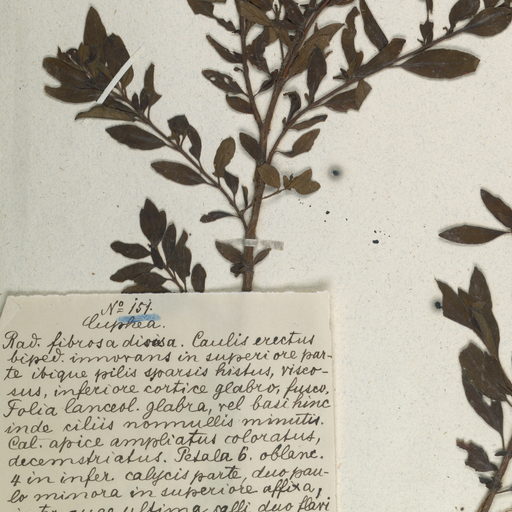 No 151.
Cuphea.
Rad. fibrosa divisa. Caulis erectus
biped. innovans in superiore par-
te ibique pilis sparsis histus, visco-
sus, inferiore cortice glabro, fusco.
Folia lanceol. glabra, vel basi hinc
inde ciliis nonnullis minutis.
Cal. apice ampliatus coloratus,
decemstriatus. Petala 6. oblanc.
4 in infer. calycis parte, duo pau-
lo minora in superiore affixa,
ultima, calli duo flavi